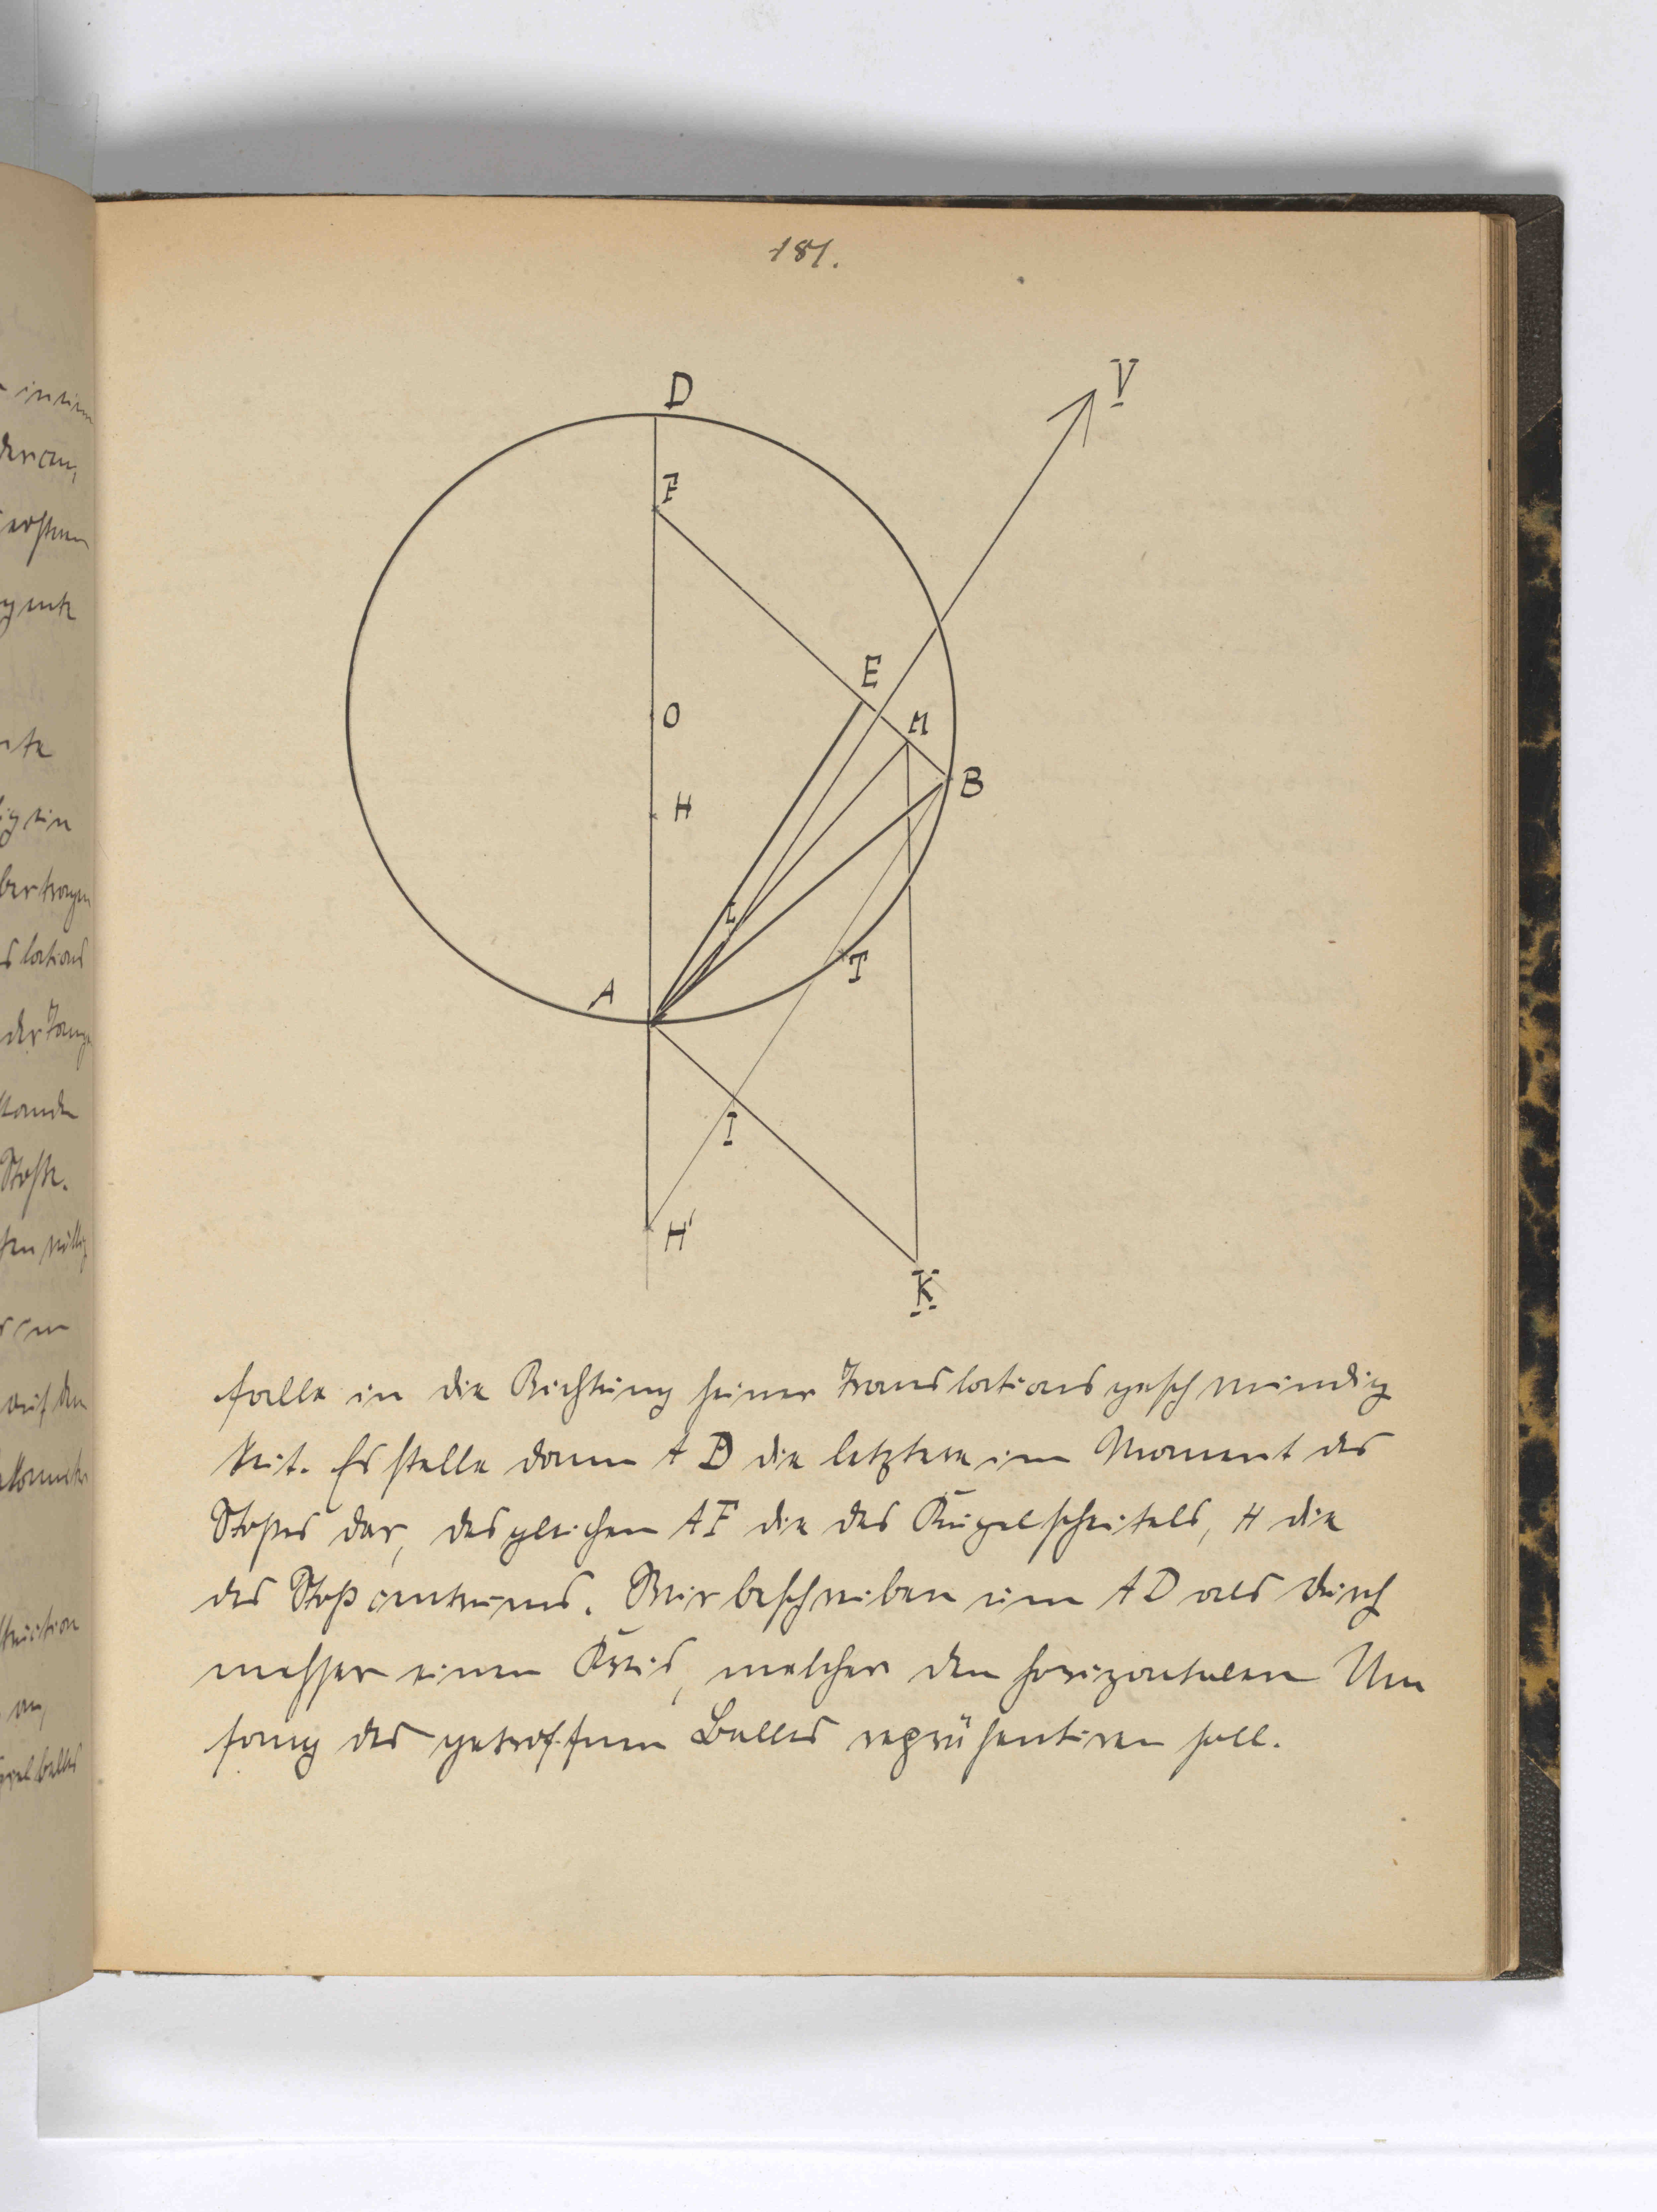 181.
D
V
F
E
M
O
B
H
L
T
A
I
H'
K
falle in die Richtung seiner Translationsgeschwindig
keit. Es stelle dann AD die letztere im Moment des
Stoßes dar, desgleichen AF die des Kugelscheitels, H die
des Stoßcentrums. Wir beschreiben um AD als Durch
messer einen Kreis, welcher den horizontalen Um
fang des getroffenen Balles repräsentiren soll.